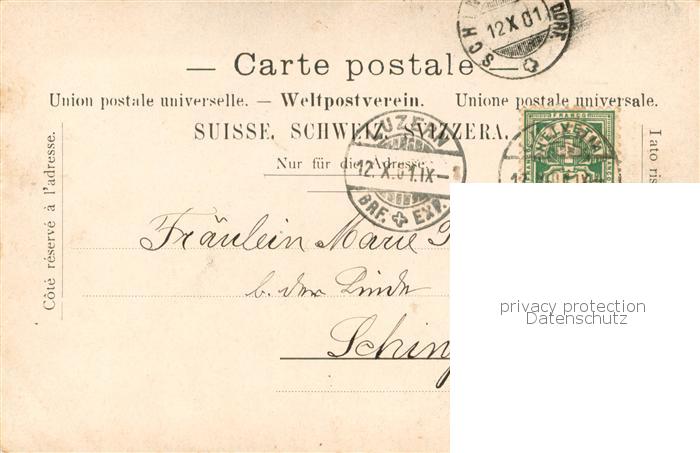 12 X 01
— Carte postale —
Union postale universelle. — Weltpostverein. Unione postale universale.
SUISSE. SCHWEIZ. SVIZZERA.
Nur für die Adresse.
12. X. 01. IX—
BRF. EXP.
FRANCO
HELVETIA
Côté réservé à l'adresse.
lato ris
Fräulein Marie
b. der Linde
Schinz
privacy protection
Datenschutz